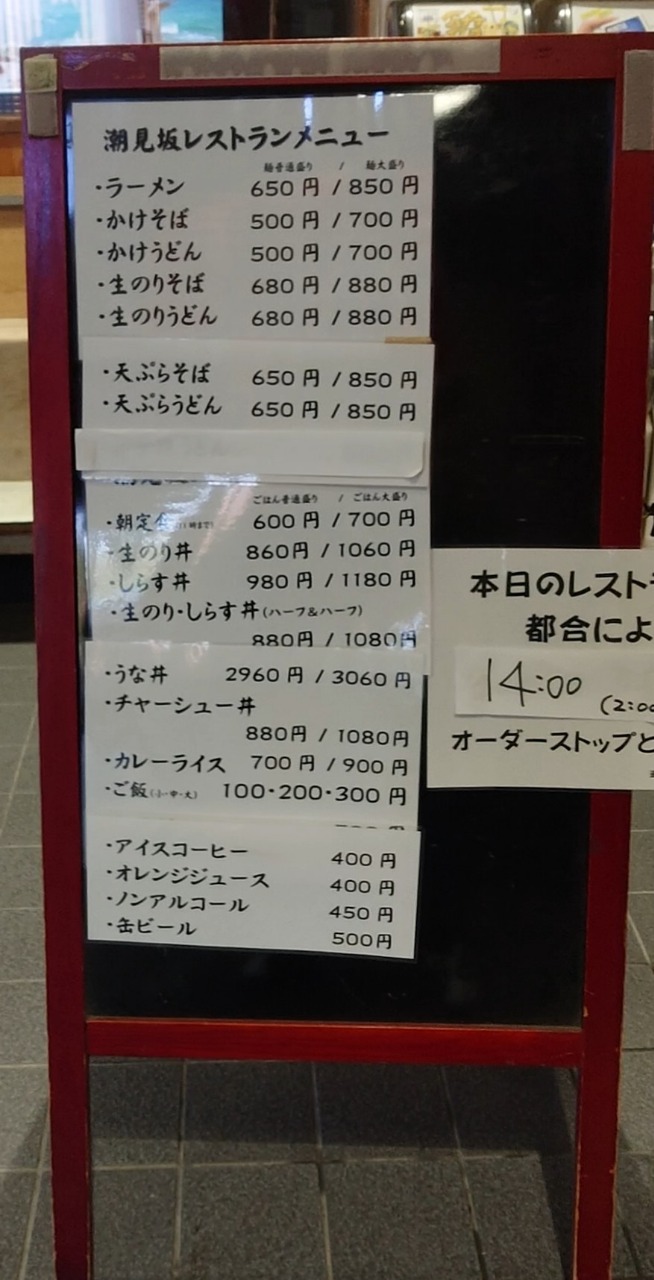 潮見坂レストランメニュー
麺普通盛り / 麺大盛り
・ラーメン 650円 / 850円
・かけそば 500円 / 700円
・かけうどん 500円 / 700円
・生のりそば 680円 / 880円
・生のりうどん 680円 / 880円
・天ぷらそば 650円 / 850円
・天ぷらうどん 650円 / 850円
ごはん普通盛り / ごはん大盛り
・朝定食 600円 / 700円
・生のり丼 860円 / 1060円
・しらす丼 980円 / 1180円
・生のり・しらす丼(ハーフ&ハーフ)
880円 / 1080円
・うな丼 2960円 / 3060円
・チャーシュー丼
880円 / 1080円
・カレーライス 700円 / 900円
・ご飯(小・中・大) 100・200・300円
・アイスコーヒー 400円
・オレンジジュース 400円
・ノンアルコール 450円
・缶ビール 500円
本日のレスト
都合によ
14:00
(2:00
オーダーストップと